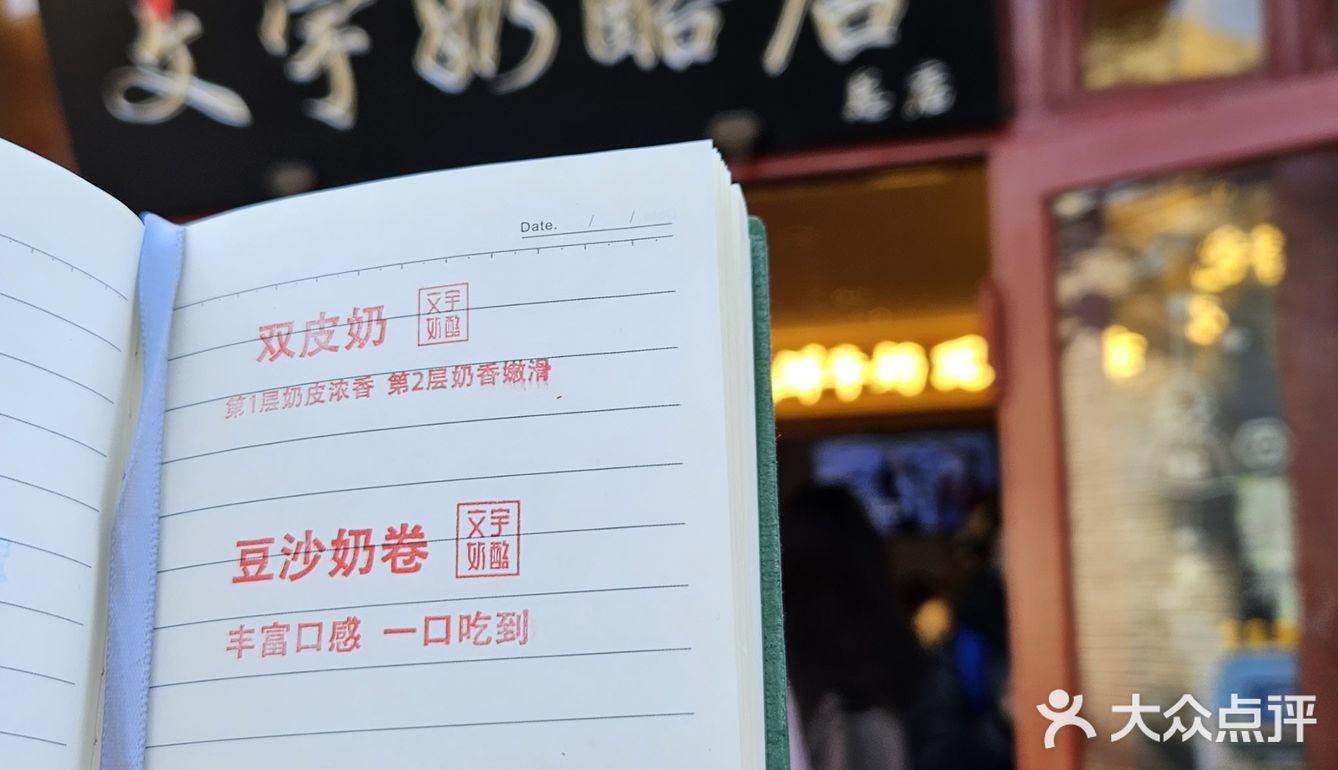 文宇奶酪店
总店
Date. / /
双皮奶 文宇奶酪
第1层奶皮浓香 第2层奶香嫩滑
豆沙奶卷 文宇奶酪
丰富口感 一口吃到
大众点评